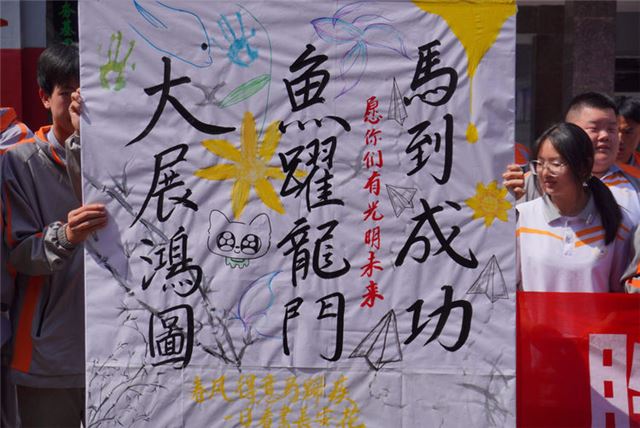 馬到成功
愿你们有光明未来
魚躍龍門
大展鴻圖
春风得意马蹄疾
一日看尽长安花